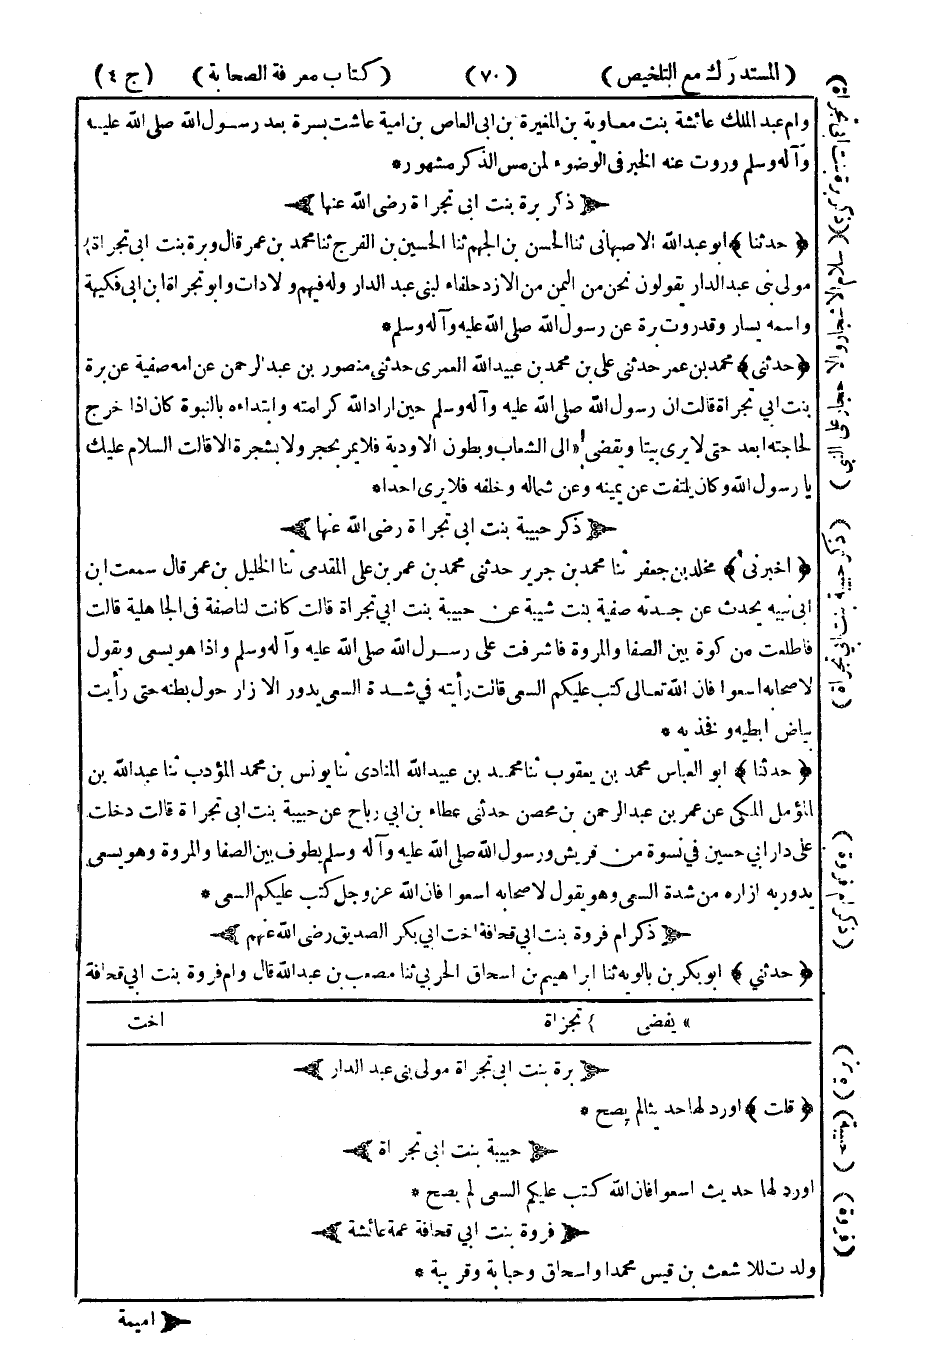 (المستدرك مع التلخيص) (٧٠) (كتاب معرفة الصحابة) (ج ٤)
وام عبد الملك عائشة بنت معاوية بن المغيرة بن ابى العاص بن امية عاشت بسرة بعد رسول الله صلى الله عليه
وآله وسلم وروت عنه الخبر فى الوضوء لمن مس الذكر مشهور *
ذكر برة بنت ابى تجراة رضى الله عنها
﴿ حدثنا ﴾ ابو عبد الله الاصبهانى ثنا الحسن بن الجهم ثنا الحسين بن الفرج ثنا محمد بن عمر قال وبرة بنت ابى تجراة {
مولى بنى عبد الدار يقولون نحن من اليمن من الازد حلفاء لبنى عبد الدار وله فيهم ولادات وابو تجراة ابن ابى فكيهة
واسمه يسار وقد روت برة عن رسول الله صلى الله عليه وآله وسلم *
﴿ حدثنى ﴾ محمد بن عمر حدثنى على بن محمد بن عبيد الله العمرى حدثنى منصور بن عبد الرحمن عن امه صفية عن برة
بنت ابي تجراة قالت ان رسول الله صلى الله عليه وآله وسلم حين اراد الله كرامته وابتداءه بالنبوة كان اذا خرج
لحاجته ابعد حتى لا يرى بيتا ويقضى » الى الشعاب وبطون الاودية فلا يمر بحجر ولا بشجرة الا قالت السلام عليك
يا رسول الله وكان يلتفت عن يمينه وعن شماله وخلفه فلا يرى احدا *
ذكر حبيبة بنت ابى تجراة رضى الله عنها
﴿ اخبرنى ﴾ مخلد بن جعفر ثنا محمد بن جرير حدثنى محمد بن عمر بن على المقدمى ثنا الخليل بن عمر قال سمعت ابن
ابى نبيه يحدث عن جدته صفية بنت شيبة عن حبيبة بنت ابي تجراة قالت كانت لنا صفة فى الجاهلية قالت
فاطلعت من كوة بين الصفا والمروة فاشرفت على رسول الله صلى الله عليه وآله وسلم واذا هو يسعى ويقول
لاصحابه اسعوا فان الله تعالى كتب عليكم السعى قالت رأيته في شدة السعى يدور الازار حول بطنه حتى رأيت
بياض ابطيه وفخذيه *
﴿ حدثنا ﴾ ابو العباس محمد بن يعقوب ثنا محمد بن عبيد الله المنادى ثنا يونس بن محمد المؤدب ثنا عبد الله بن
المؤمل المكى عن عمر بن عبد الرحمن بن محصن حدثنى عطاء بن ابي رباح عن حبيبة بنت ابى تجراة قالت دخلت
على دار ابي حسين في نسوة من قريش ورسول الله صلى الله عليه وآله وسلم يطوف بين الصفا والمروة وهو يسعى
يدور به ازاره من شدة السعى وهو يقول لاصحابه اسعوا فان الله عز وجل كتب عليكم السعى *
ذكر ام فروة بنت ابي قحافة اخت ابي بكر الصديق رضى الله عنهم
﴿ حدثني ﴾ ابو بكر بن بالويه ثنا ابراهيم بن اسحاق الحربي ثنا مصعب بن عبد الله قال وام فروة بنت ابي قحافة
» يفضى } تجزاة اخت
برة بنت ابى تجراة مولى بنى عبد الدار
﴿ قلت ﴾ اورد لها حديثا لم يصح *
حبيبة بنت ابى تجراة
اورد لها حديث اسعوا فان الله كتب عليكم السعى لم يصح *
فروة بنت ابي قحافة عمة عائشة
ولدت للاشعث بن قيس محمدا واسحاق وحبابة وقريبة *
اميمة
(ذكر برة بنت ابى تجراة)
(ذكر حبيبة بنت ابى تجراة)
(ذكر ام فروة)
(برة)
(حبيبة)
(فروة)